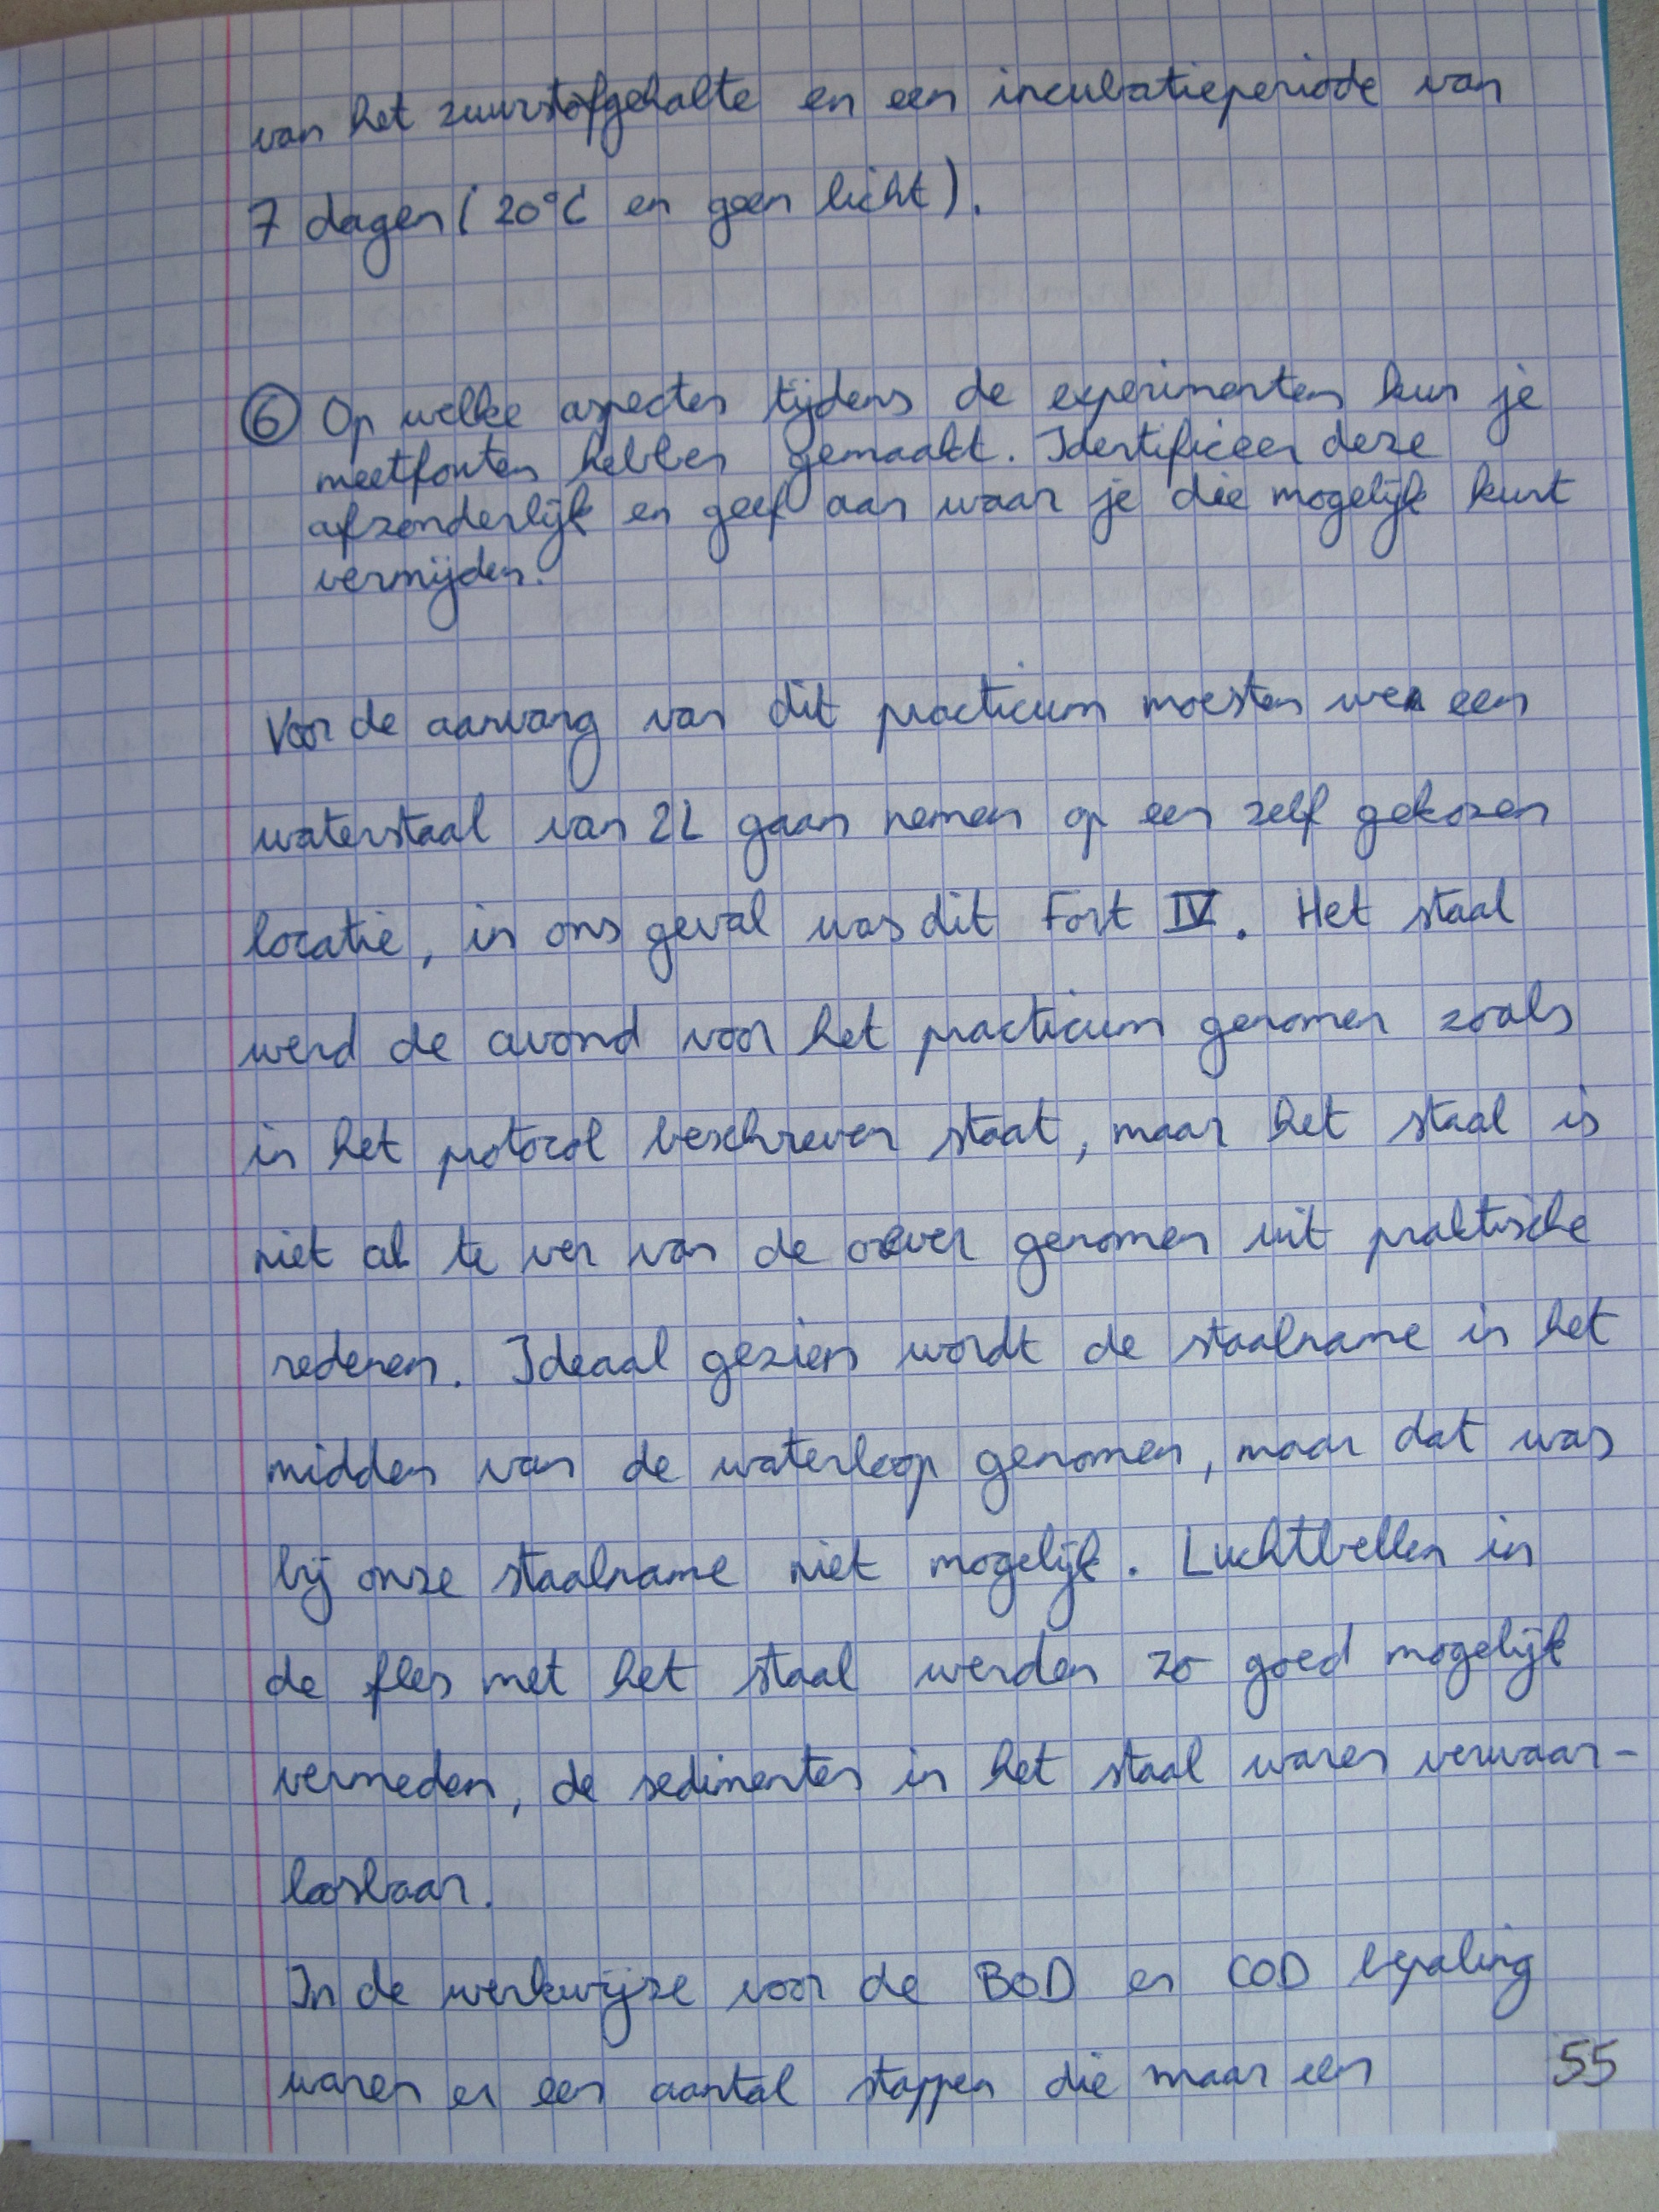 van het zuurstofgehalte en een incubatieperiode van
7 dagen (20°C en geen licht).
⑥ Op welke aspecten tijdens de experimenten kun je
meetfouten hebben gemaakt. Identificeer deze
afzonderlijk en geef aan waar je die mogelijk kunt
vermijden.
Voor de aanvang van dit practicum moesten we een
waterstaal van 2L gaan nemen op een zelf gekozen
locatie, in ons geval was dit Fort IV. Het staal
werd de avond voor het practicum genomen zoals
in het protocol beschreven staat, maar het staal is
niet al te ver van de oever genomen uit praktische
redenen. Ideaal gezien wordt de staalname in het
midden van de waterloop genomen, maar dat was
bij onze staalname niet mogelijk. Luchtbellen in
de fles met het staal werden zo goed mogelijk
vermeden, de sedimenten in het staal waren verwaar-
loosbaar.
In de werkwijze voor de BOD en COD bepaling
waren er een aantal stappen die maar een
55